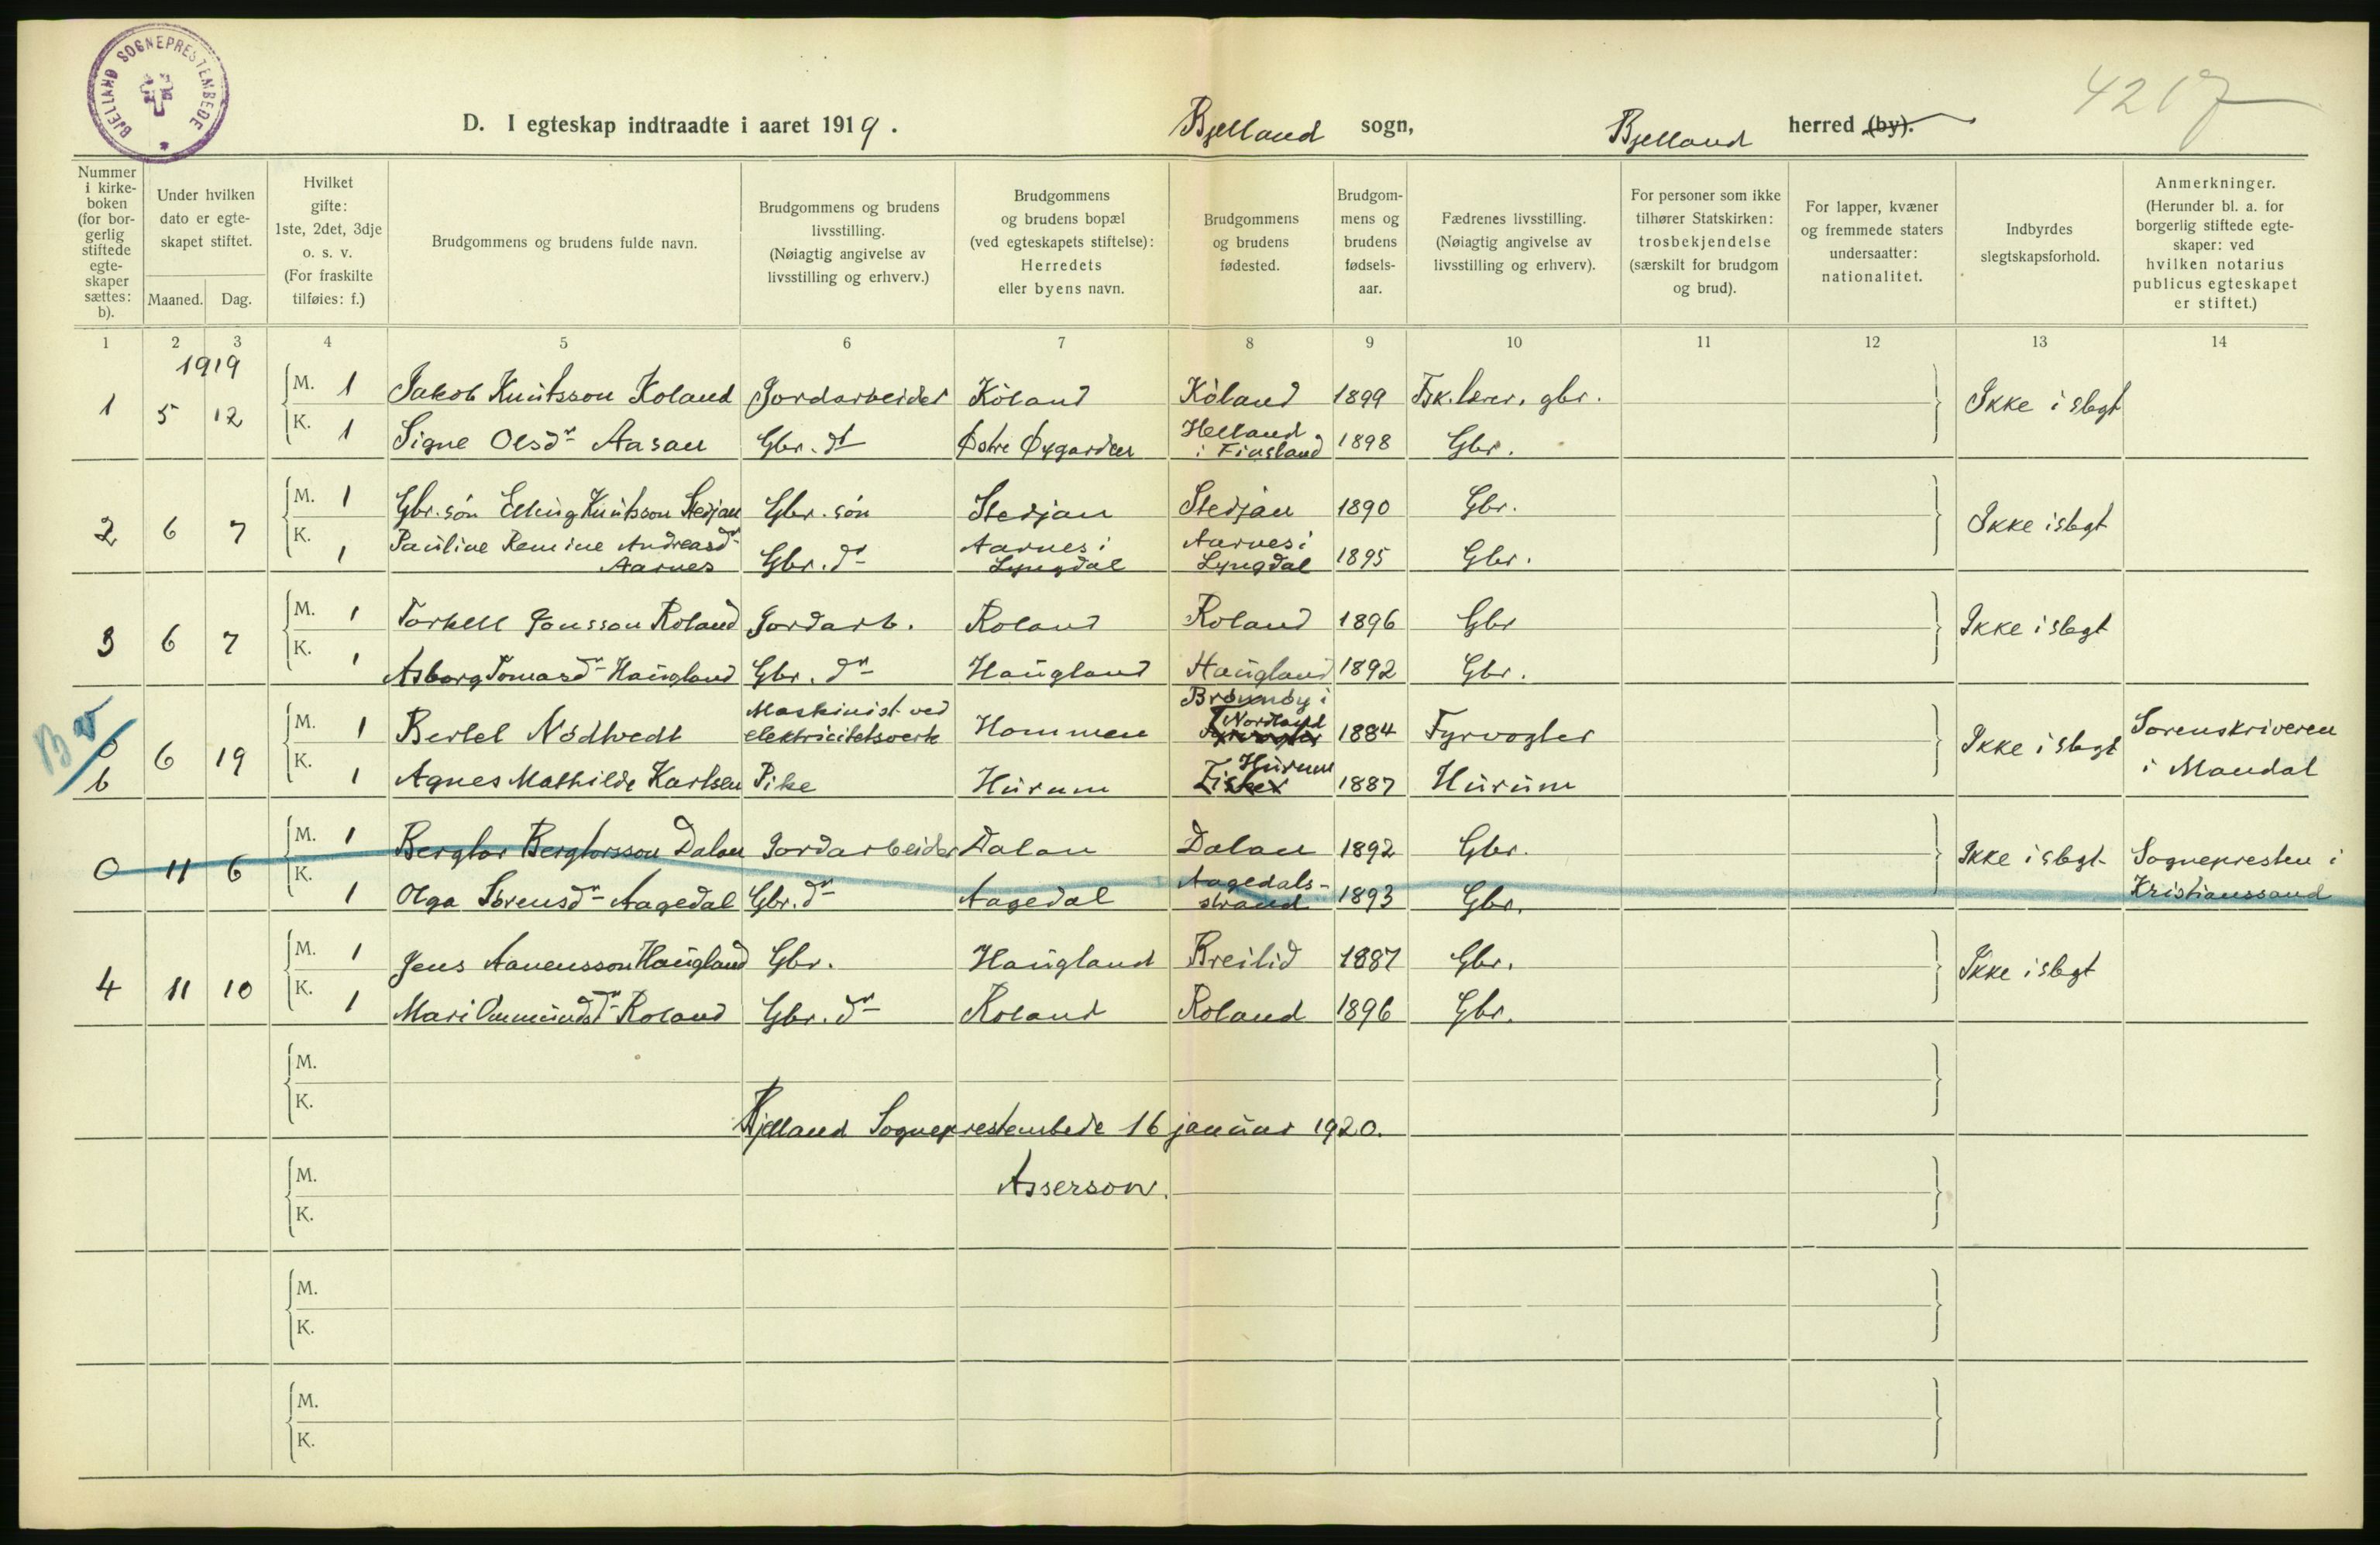 BJELLAND SOGNEPRESTEMBEDE
4217
D. I egteskap indtraadte i aaret 1919. Bjelland sogn, Bjelland herred (by).
Nummer i kirke-boken (for bor-gerlig stiftede egte-skaper sættes: b).
Under hvilken dato er egte-skapet stiftet.
Maaned. Dag.
Hvilket gifte: 1ste, 2det, 3dje o. s. v. (For fraskilte tilføies: f.)
Brudgommens og brudens fulde navn.
Brudgommens og brudens livsstilling. (Nøiagtig angivelse av livsstilling og erhverv.)
Brudgommens og brudens bopæl (ved egteskapets stiftelse): Herredets eller byens navn.
Brudgommens og brudens fødested.
Brudgom-mens og brudens fødsels-aar.
Fædrenes livsstilling. (Nøiagtig angivelse av livsstilling og erhverv).
For personer som ikke tilhører Statskirken: trosbekjendelse (særskilt for brudgom og brud).
For lapper, kvæner og fremmede staters undersaatter: nationalitet.
Indbyrdes slegtskapsforhold.
Anmerkninger. (Herunder bl. a. for borgerlig stiftede egte-skaper: ved hvilken notarius publicus egteskapet er stiftet.)
1 2 3 4 5 6 7 8 9 10 11 12 13 14
1919
1 5 12 M. 1 Jakob Knutsson Koland Jordarbeider Köland Köland 1899 Fsk. lærer, gbr. Ikke i slegt
K. 1 Signe Olsdr Aasan Gbr. dr Østre Øygarden Helland i Finsland 1898 Gbr.
2 6 7 M. 1 Gbr. søn Elling Knutsson Stedjan Gbr. søn Stedjan Stedjan 1890 Gbr. Ikke i slegt
K. 1 Pauline Remine Andreasdr Aarnes Gbr. dr Aarnes i Lyngdal Aarnes i Lyngdal 1895 Gbr.
3 6 7 M. 1 Torkell Jonsson Roland Jordarb. Roland Roland 1896 Gbr Ikke i slegt
K. 1 Asborg Tomasdr Haugland Gbr. dr Haugland Haugland 1892 Gbr.
b 6 19 M. 1 Bertel Nödtvedt Maskinist ved elektricitetsverk Hommen Brønnöy i Nordland 1884 Fyrvogter Ikke i slegt Sorenskriveren i Mandal
K. 1 Agnes Mathilde Karlsen Pike Hurum Fisker Hurum 1887 Hurum
0 11 6 M. 1 Bergtor Bergtorsson Dalan Jordarbeider Dalan Dalan 1892 Gbr. Ikke i slegt Sognepresten i Kristianssand
K. 1 Olga Sørensdr Aagedal Gbr. dr Aagedal Aagedals-strand 1893 Gbr.
4 11 10 M. 1 Jens Aanensson Haugland Gbr. Haugland Breilid 1887 Gbr. Ikke i slegt
K. 1 Mari Ommundsdr Roland Gbr. dr Roland Roland 1896 Gbr.
M.
K.
Bjelland Sogneprestembede 16 januar 1920.
M.
Asserson.
K.
M.
K.
M.
K.